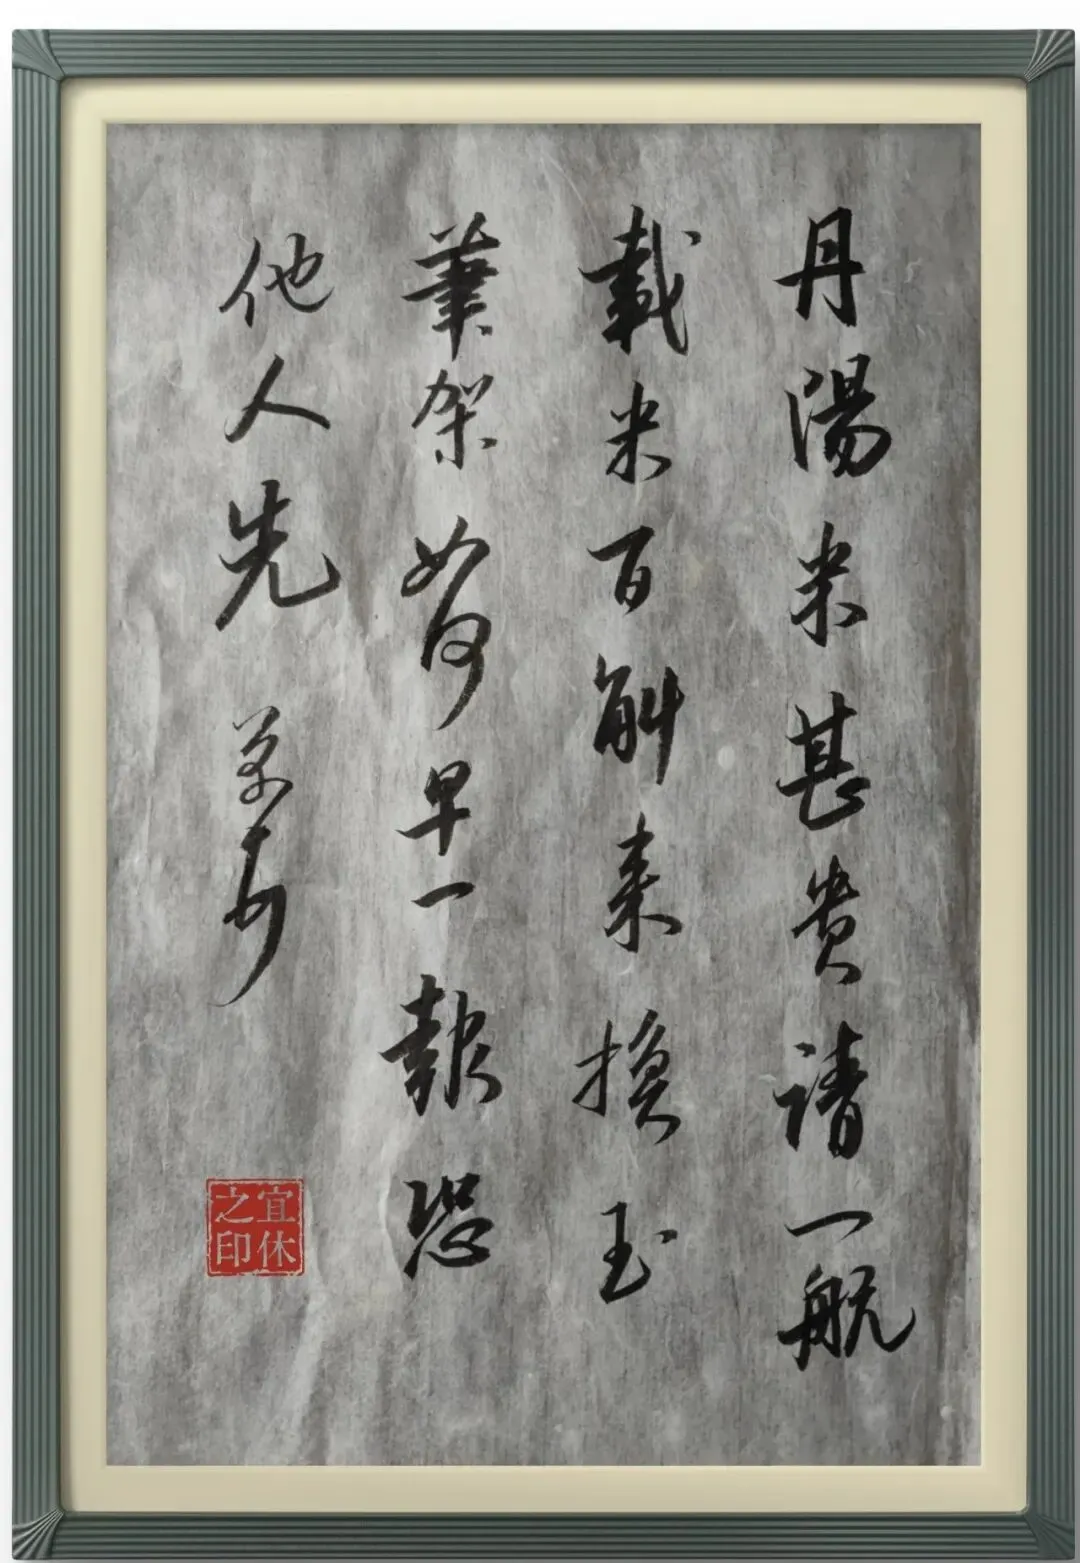 丹陽米甚貴請一航
載米百斛来換玉
筆架如何早一報恐
他人先 芾頓首
宜休之印